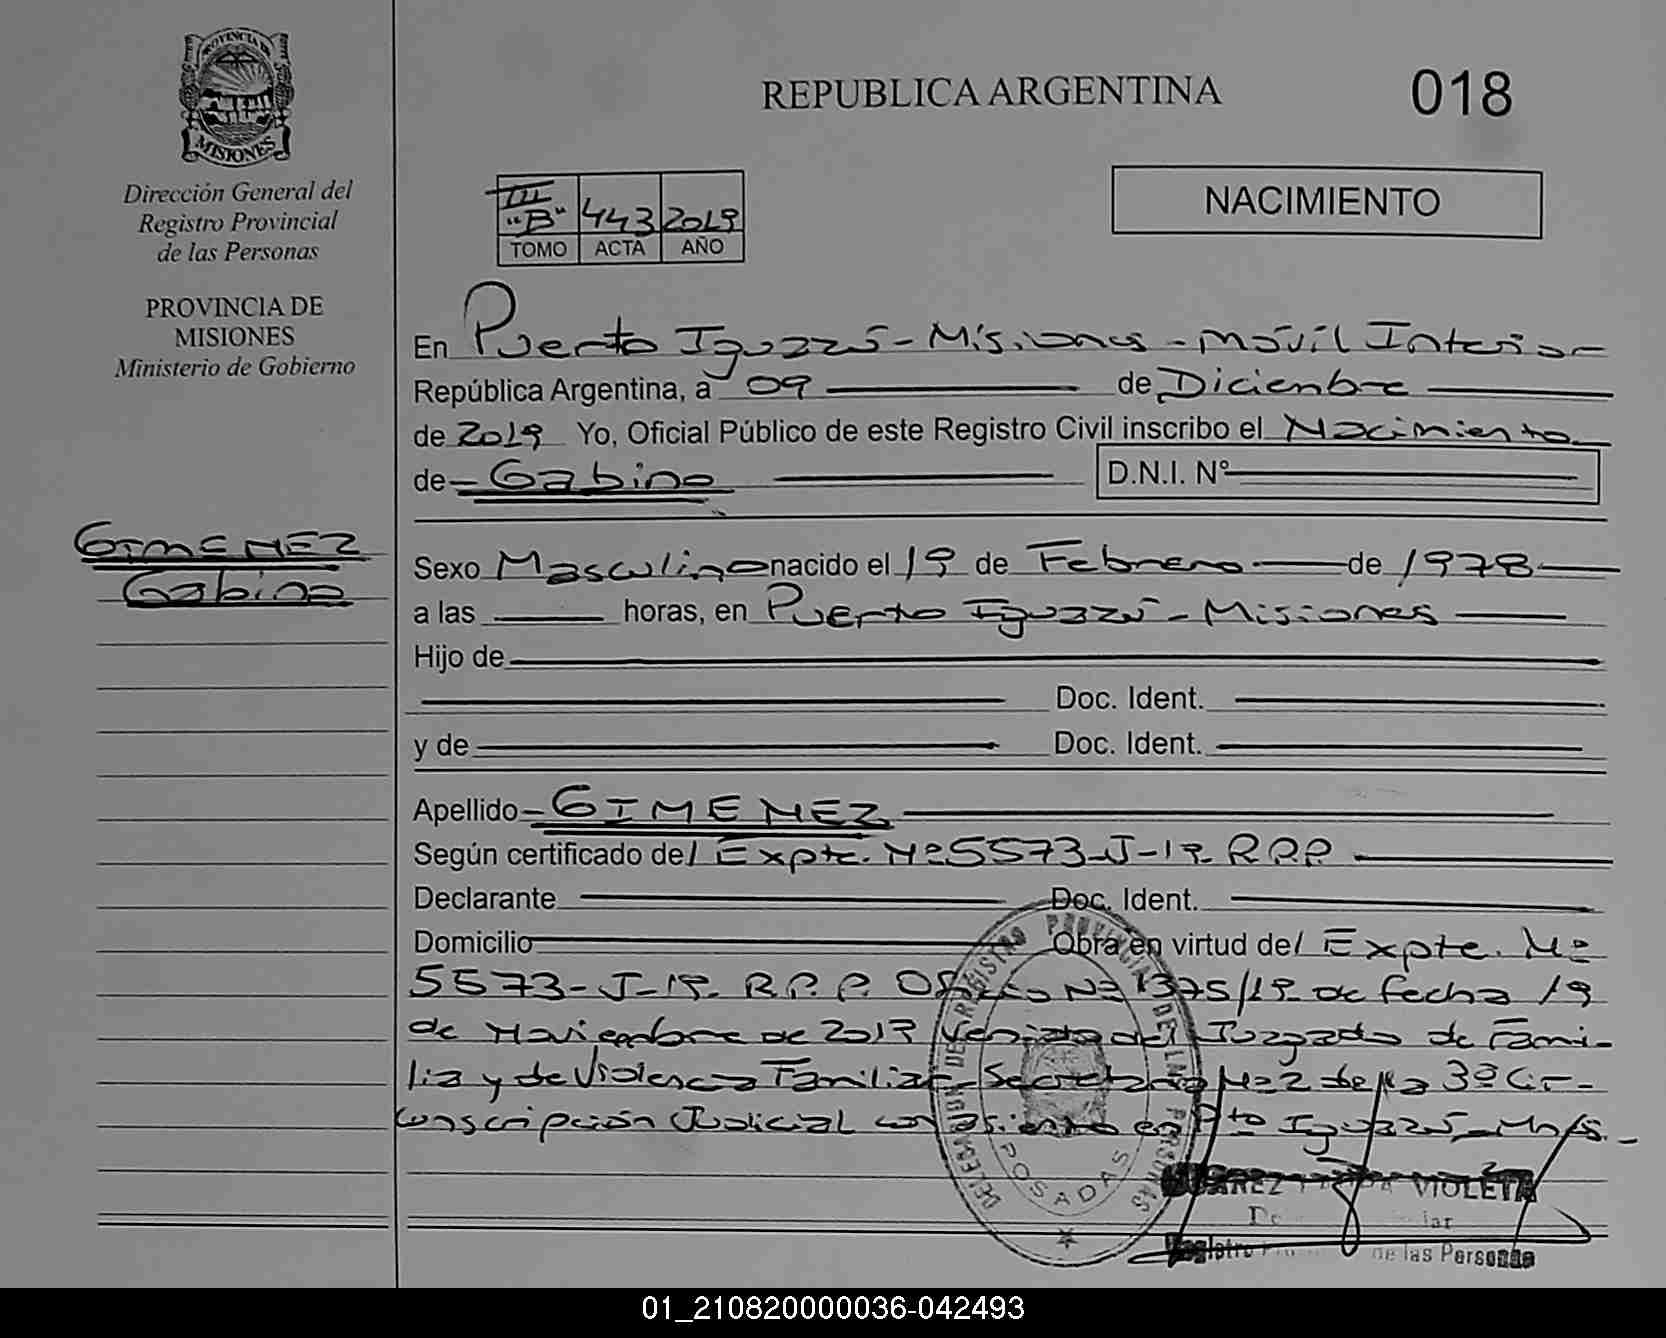 PROVINCIA DE
MISIONES
Dirección General del
Registro Provincial
de las Personas
PROVINCIA DE
MISIONES
Ministerio de Gobierno
GIMENEZ
Gabino
REPUBLICA ARGENTINA
018
III
"B" 443 2019
TOMO ACTA AÑO
NACIMIENTO
En Puerto Iguazú - Misiones - Móvil Interior
República Argentina, a 09 de Diciembre
de 2019 Yo, Oficial Público de este Registro Civil inscribo el Nacimiento
de Gabino D.N.I. Nº
Sexo Masculino nacido el 19 de Febrero de 1978
a las horas, en Puerto Iguazú - Misiones
Hijo de
Doc. Ident.
y de Doc. Ident.
Apellido GIMENEZ
Según certificado del Expte. Nº 5573-J-19- R.P.P.
Declarante Doc. Ident.
Domicilio Obra en virtud del Expte. Nº
5573-J-19- R.P.P. Nº 1375/19 de fecha 19
de Noviembre de 2019 del Juzgado de Fami-
lia y de Violencia Familiar - Secretaría Nº 2 de la 3º Cir-
conscripción Judicial con asiento en Pto Iguazú - Mnes.-
DELEGACION DE REGISTRO PROVINCIAL DE LAS PERSONAS
POSADAS
VIOLETA
Registro de las Personas
01_210820000036-042493